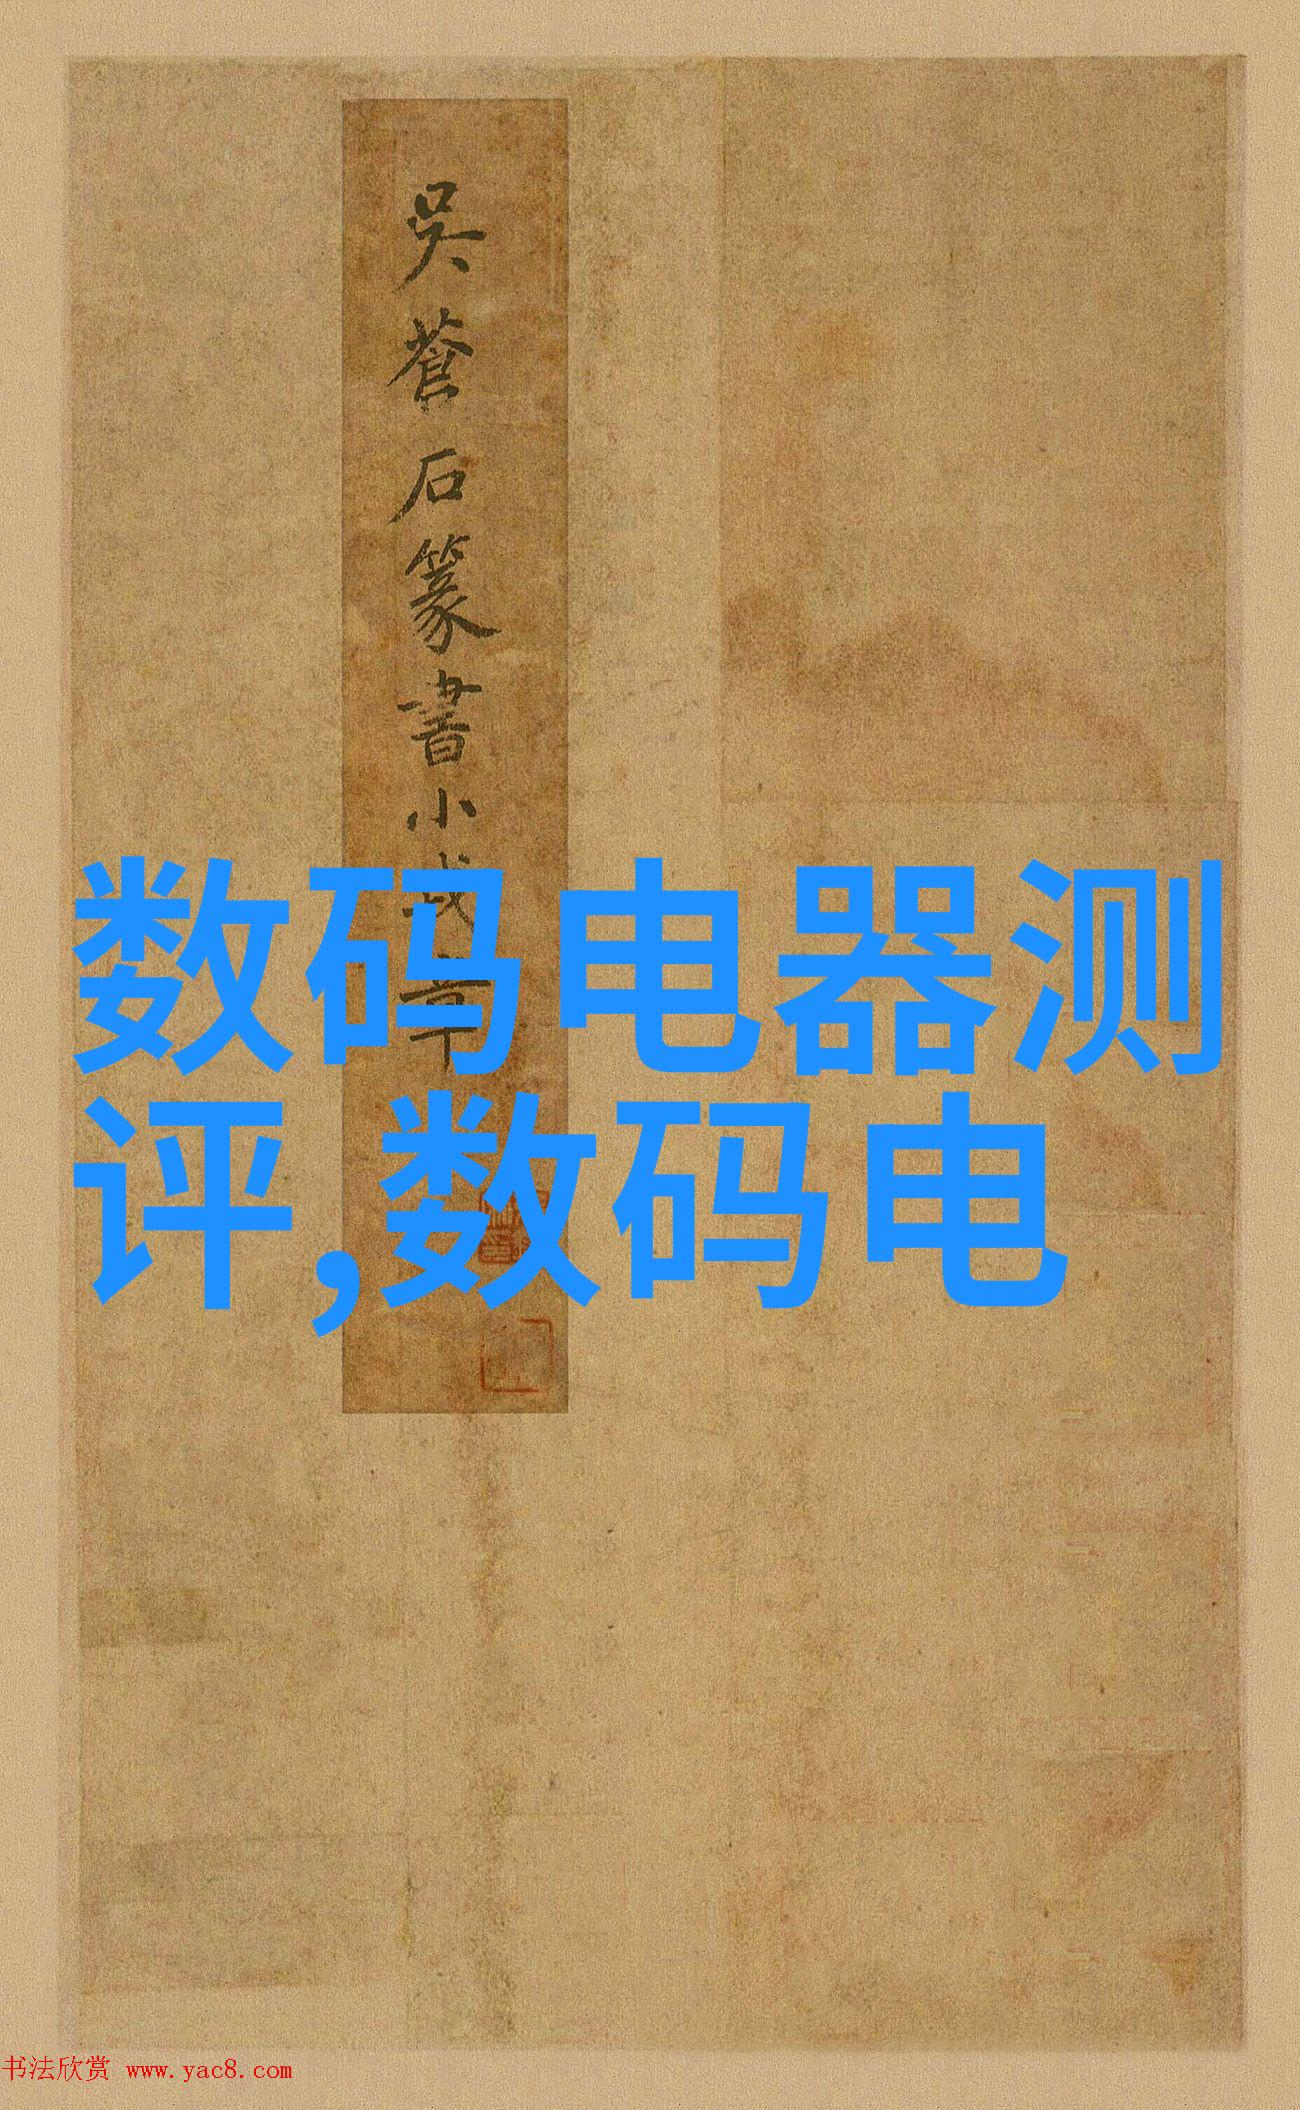 吳蒼石篆書小戎章
数码电器测
评,数码电
书法欣赏 www.yac8.com